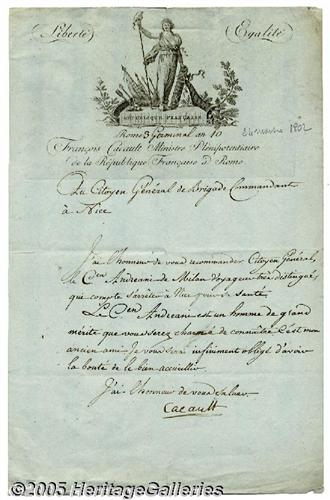 Liberté Egalité
REPUBLIQUE FRANÇAISE
Rome 3 Germinal an 10
24 mars 1802
François Cacault Ministre Plénipotentiaire
de la République Française à Rome
Au Citoyen Général de Brigade Commandant
à Nice
J'ai l'honneur de vous recommander Citoyen Général,
le Cen Andreani de Milan voyageur très distingué,
qui compte s'arrêter à Nice pour sa santé.
Le Cen Andreani est un homme de grand
mérite que vous serez charmé de connaitre. C'est mon
ancien ami. Je vous serai infiniment obligé d'avoir
la bonté de le bien accueillir
J'ai l'honneur de vous saluer
Cacault
©2005 HeritageGalleries